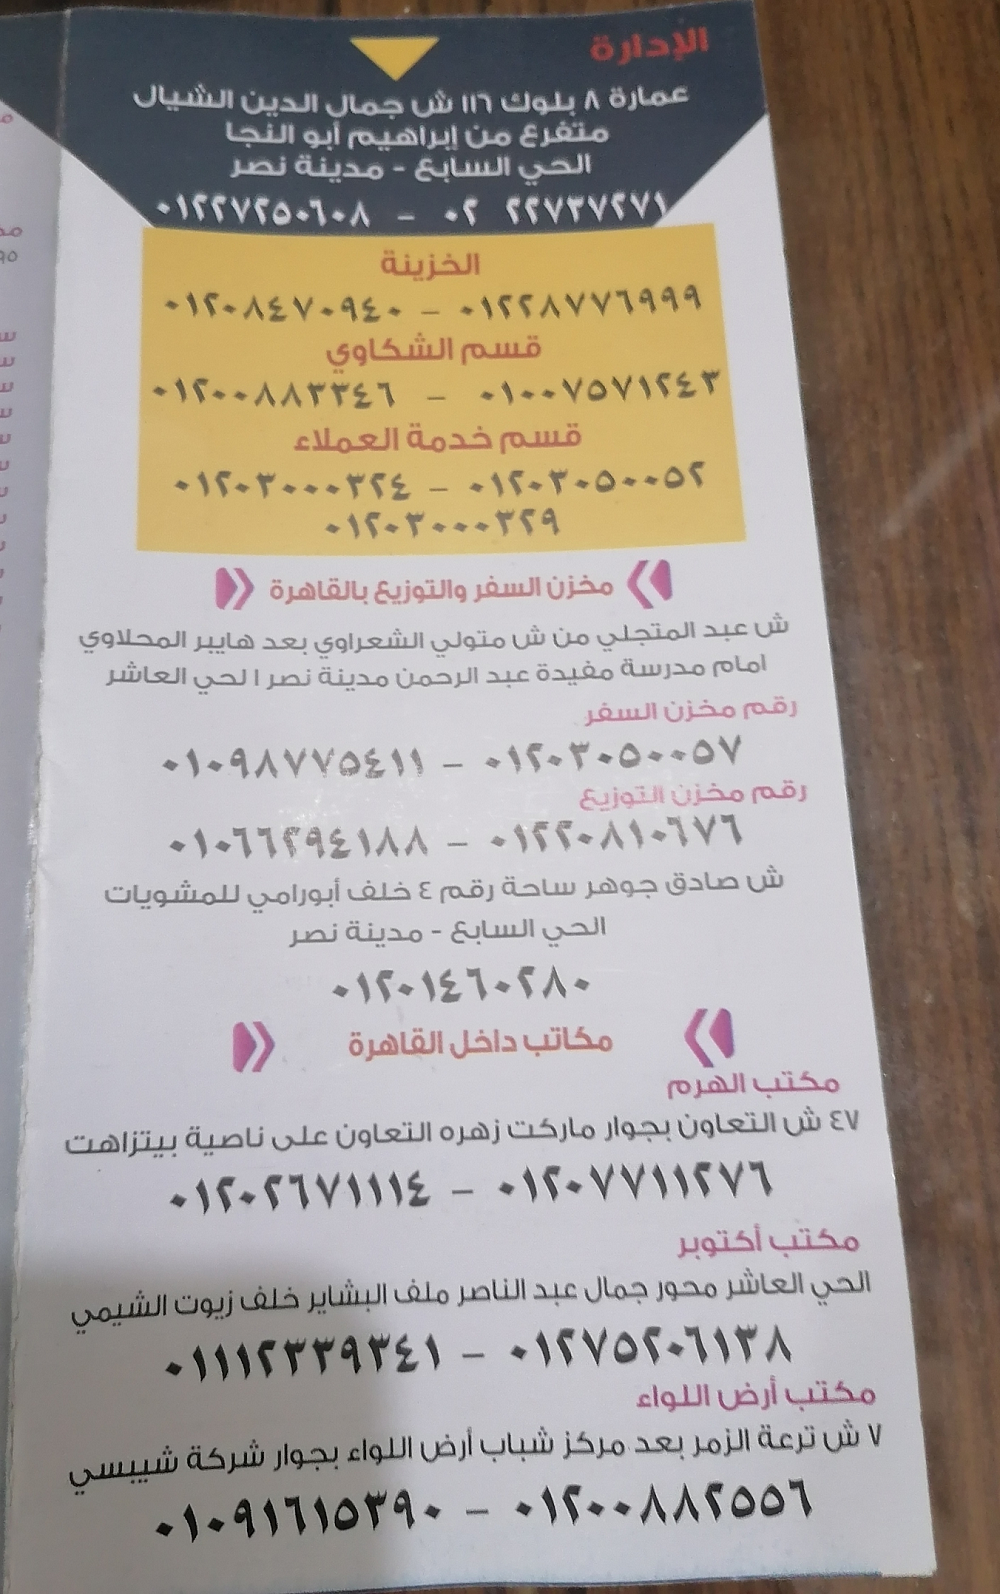 الإدارة
عمارة ٨ بلوك ١١٦ ش جمال الدين الشيال
متفرع من إبراهيم أبو النجا
الحي السابع - مدينة نصر
٠٢ ٢٢٧٣٧٢٧١ - ٠١٢٢٧٢٥٠٦٠٨
الخزينة
٠١٢٢٨٧٧٦٩٩٩ - ٠١٢٠٨٤٧٠٩٤٠
قسم الشكاوي
٠١٠٠٧٥٧١٢٤٣ - ٠١٢٠٠٨٨٣٣٤٦
قسم خدمة العملاء
٠١٢٠٣٠٥٠٠٥٢ - ٠١٢٠٣٠٠٠٣٢٤
٠١٢٠٣٠٠٠٣٢٩
مخزن السفر والتوزيع بالقاهرة
ش عبد المتجلي من ش متولي الشعراوي بعد هايبر المحلاوي
امام مدرسة مفيدة عبد الرحمن مدينة نصر ا لحي العاشر
رقم مخزن السفر
٠١٢٠٣٠٥٠٠٥٧ - ٠١٠٩٨٧٧٥٤١١
رقم مخزن التوزيع
٠١٢٢٠٨١٠٦٧٦ - ٠١٠٦٦٢٩٤١٨٨
ش صادق جوهر ساحة رقم ٤ خلف أبورامي للمشويات
الحي السابع - مدينة نصر
٠١٢٠١٤٦٠٢٨٠
مكاتب داخل القاهرة
مكتب الهرم
٤٧ ش التعاون بجوار ماركت زهره التعاون على ناصية بيتزاهت
٠١٢٠٧٧١١٢٧٦ - ٠١٢٠٢٦٧١١١٤
مكتب أكتوبر
الحي العاشر محور جمال عبد الناصر ملف البشاير خلف زيوت الشيمي
٠١٢٧٥٢٠٦١٣٨ - ٠١١١٢٣٣٩٣٤١
مكتب أرض اللواء
٧ ش ترعة الزمر بعد مركز شباب أرض اللواء بجوار شركة شيبسي
٠١٢٠٠٨٨٢٥٥٦ - ٠١٠٩١٦١٥٣٩٠